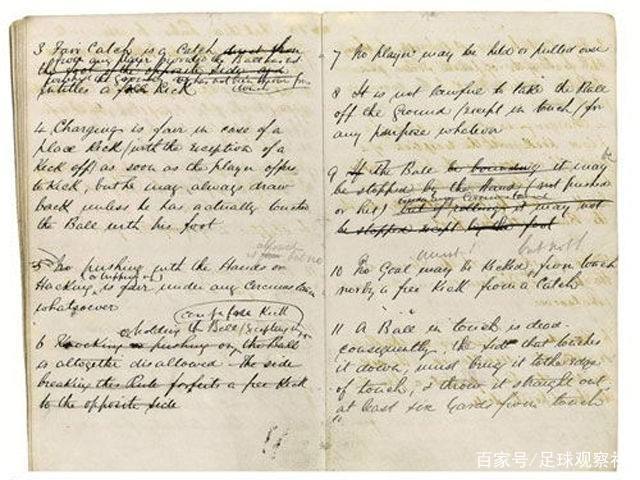 3 Fair Catch is a Catch direct from
from any player provided the Ball has not
the foot of the opposite side and
touched the ground
entitles a free Kick
4 Charging is fair in case of a
place Kick (with the exception of a
Kick off) as soon as the player offers
to Kick, but he may always draw
back unless he has actually touched
the Ball with his foot
5 No pushing with the Hands or
Hacking, is fair under any Circumstances
whatsoever
confine Kick
holding the Ball
6 Knocking or pushing on the Ball
is altogether disallowed. The side
breaking this Rule forfeits a free Kick
to the opposite side
7 No player may be held or pulled over
8 It is not lawful to take the Ball
off the Ground (except in touch) for
any purpose whatever
be
9 If the Ball be bounding it may
be stopped by the Hand (not pushed
or hit) but if rolling it may not
be stopped except by the foot
must!
but not
10 No Goal may be kicked, from touch
nor by a free Kick from a Catch
11 A Ball in touch is dead.
consequently, the side that touches
it down, must bring it to the edge
of touch, & throw it straight out,
at least six yards from touch
百家号/足球观察社